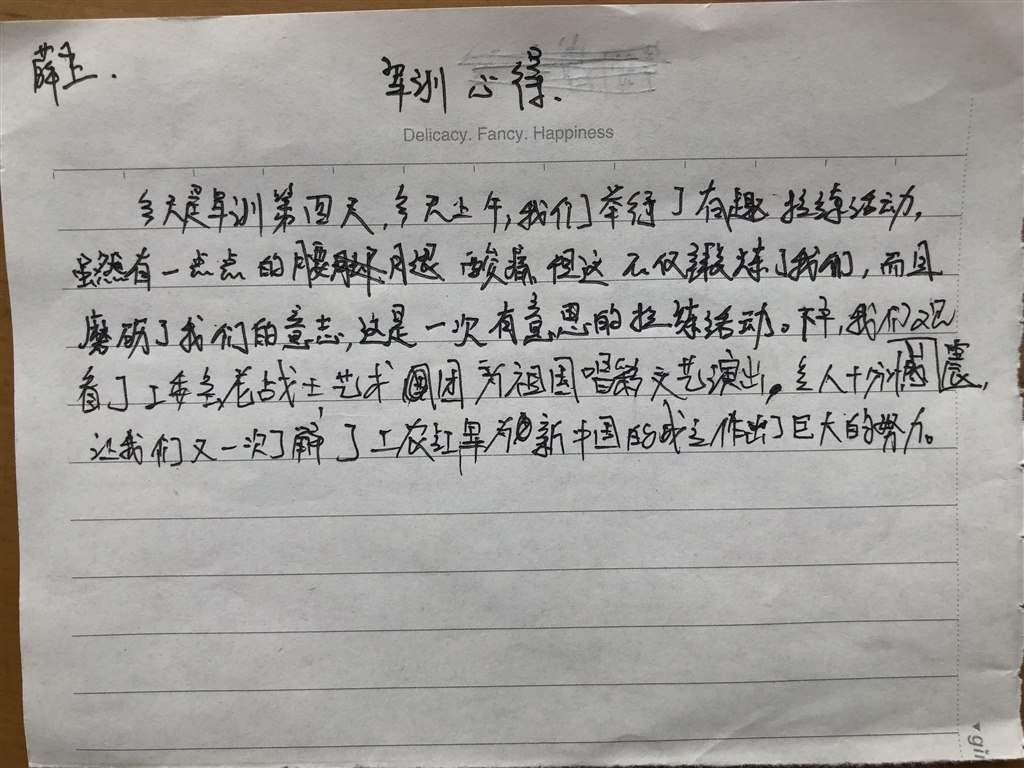 薛立.
军训心得.
Delicacy. Fancy. Happiness
今天是军训第四天,今天上午,我们举行了有趣拉练活动,
虽然有一点点的腰腿酸痛但这不仅锻炼了我们,而且
磨砺了我们的意志,这是一次有意思的拉练活动。下午,我们观
看了工委会老战士艺术团为祖国唱第文艺演出。令人十分感震,
让我们又一次了解了工农红军为新中国的成立作出了巨大的努力。
gi